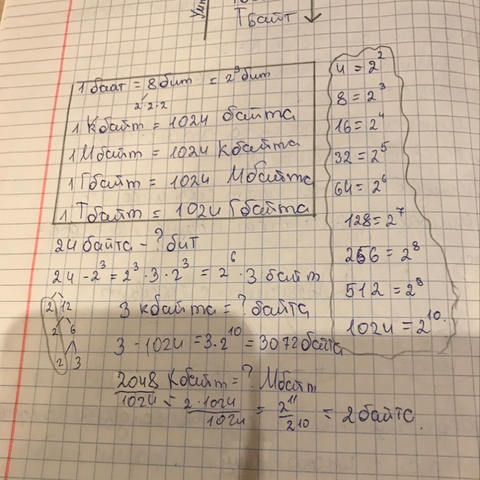 Тбайт
1 байт = 8 бит = 2³ бит
2·2·2
1 Кбайт = 1024 байта
1 Мбайт = 1024 Кбайта
1 Гбайт = 1024 Мбайта
1 Тбайт = 1024 Гбайта
4 = 2²
8 = 2³
16 = 2⁴
32 = 2⁵
64 = 2⁶
128 = 2⁷
256 = 2⁸
512 = 2⁹
1024 = 2¹⁰.
24 байта - ? бит
24 · 2³ = 2³ · 3 · 2³ = 2⁶ · 3 байт
2 12
2 6
2 3
3 кбайта = ? байта
3 · 1024 = 3 · 2¹⁰ = 3072 байта
2048 Кбайт = ? Мбайт
2048/1024 = 2·1024/1024 = 2¹¹/2¹⁰ = 2 байта.